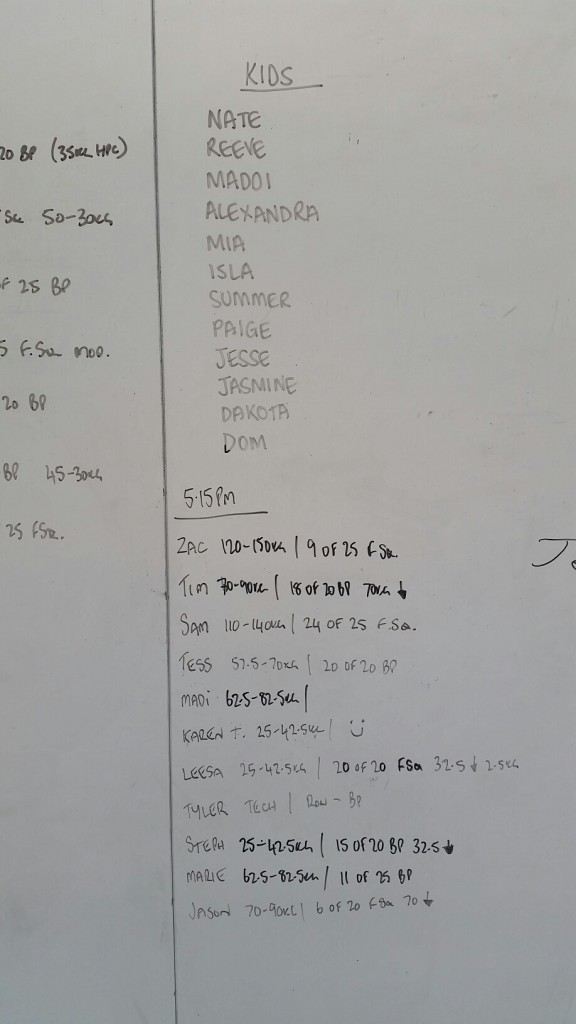 20 BP (35KG HPC)
50-30KG
OF 25 BP
5 F.SQ MOD.
20 BP
BP 45-30KG
25 FSQ.
KIDS
NATE
REEVE
MADDI
ALEXANDRA
MIA
ISLA
SUMMER
PAIGE
JESSE
JASMINE
DAKOTA
DOM
5:15PM
ZAC 120-150KG | 9 OF 25 F.SQ.
TIM 70-90KG | 18 OF 20 BP 70KG ↓
SAM 110-140KG | 24 OF 25 F.SQ.
TESS 57.5-70KG | 20 OF 20 BP
MADI 62.5-82.5KG |
KAREN T. 25-42.5KG | :)
LEESA 25-42.5KG | 20 OF 20 FSQ 32.5 ↓ 2.5KG
TYLER TECH | ROW - BP
STEPH 25-42.5KG | 15 OF 20 BP 32.5 ↓
MARIE 62.5-82.5KG | 11 OF 25 BP
JASON 70-90KG | 6 OF 20 FSQ 70 ↓